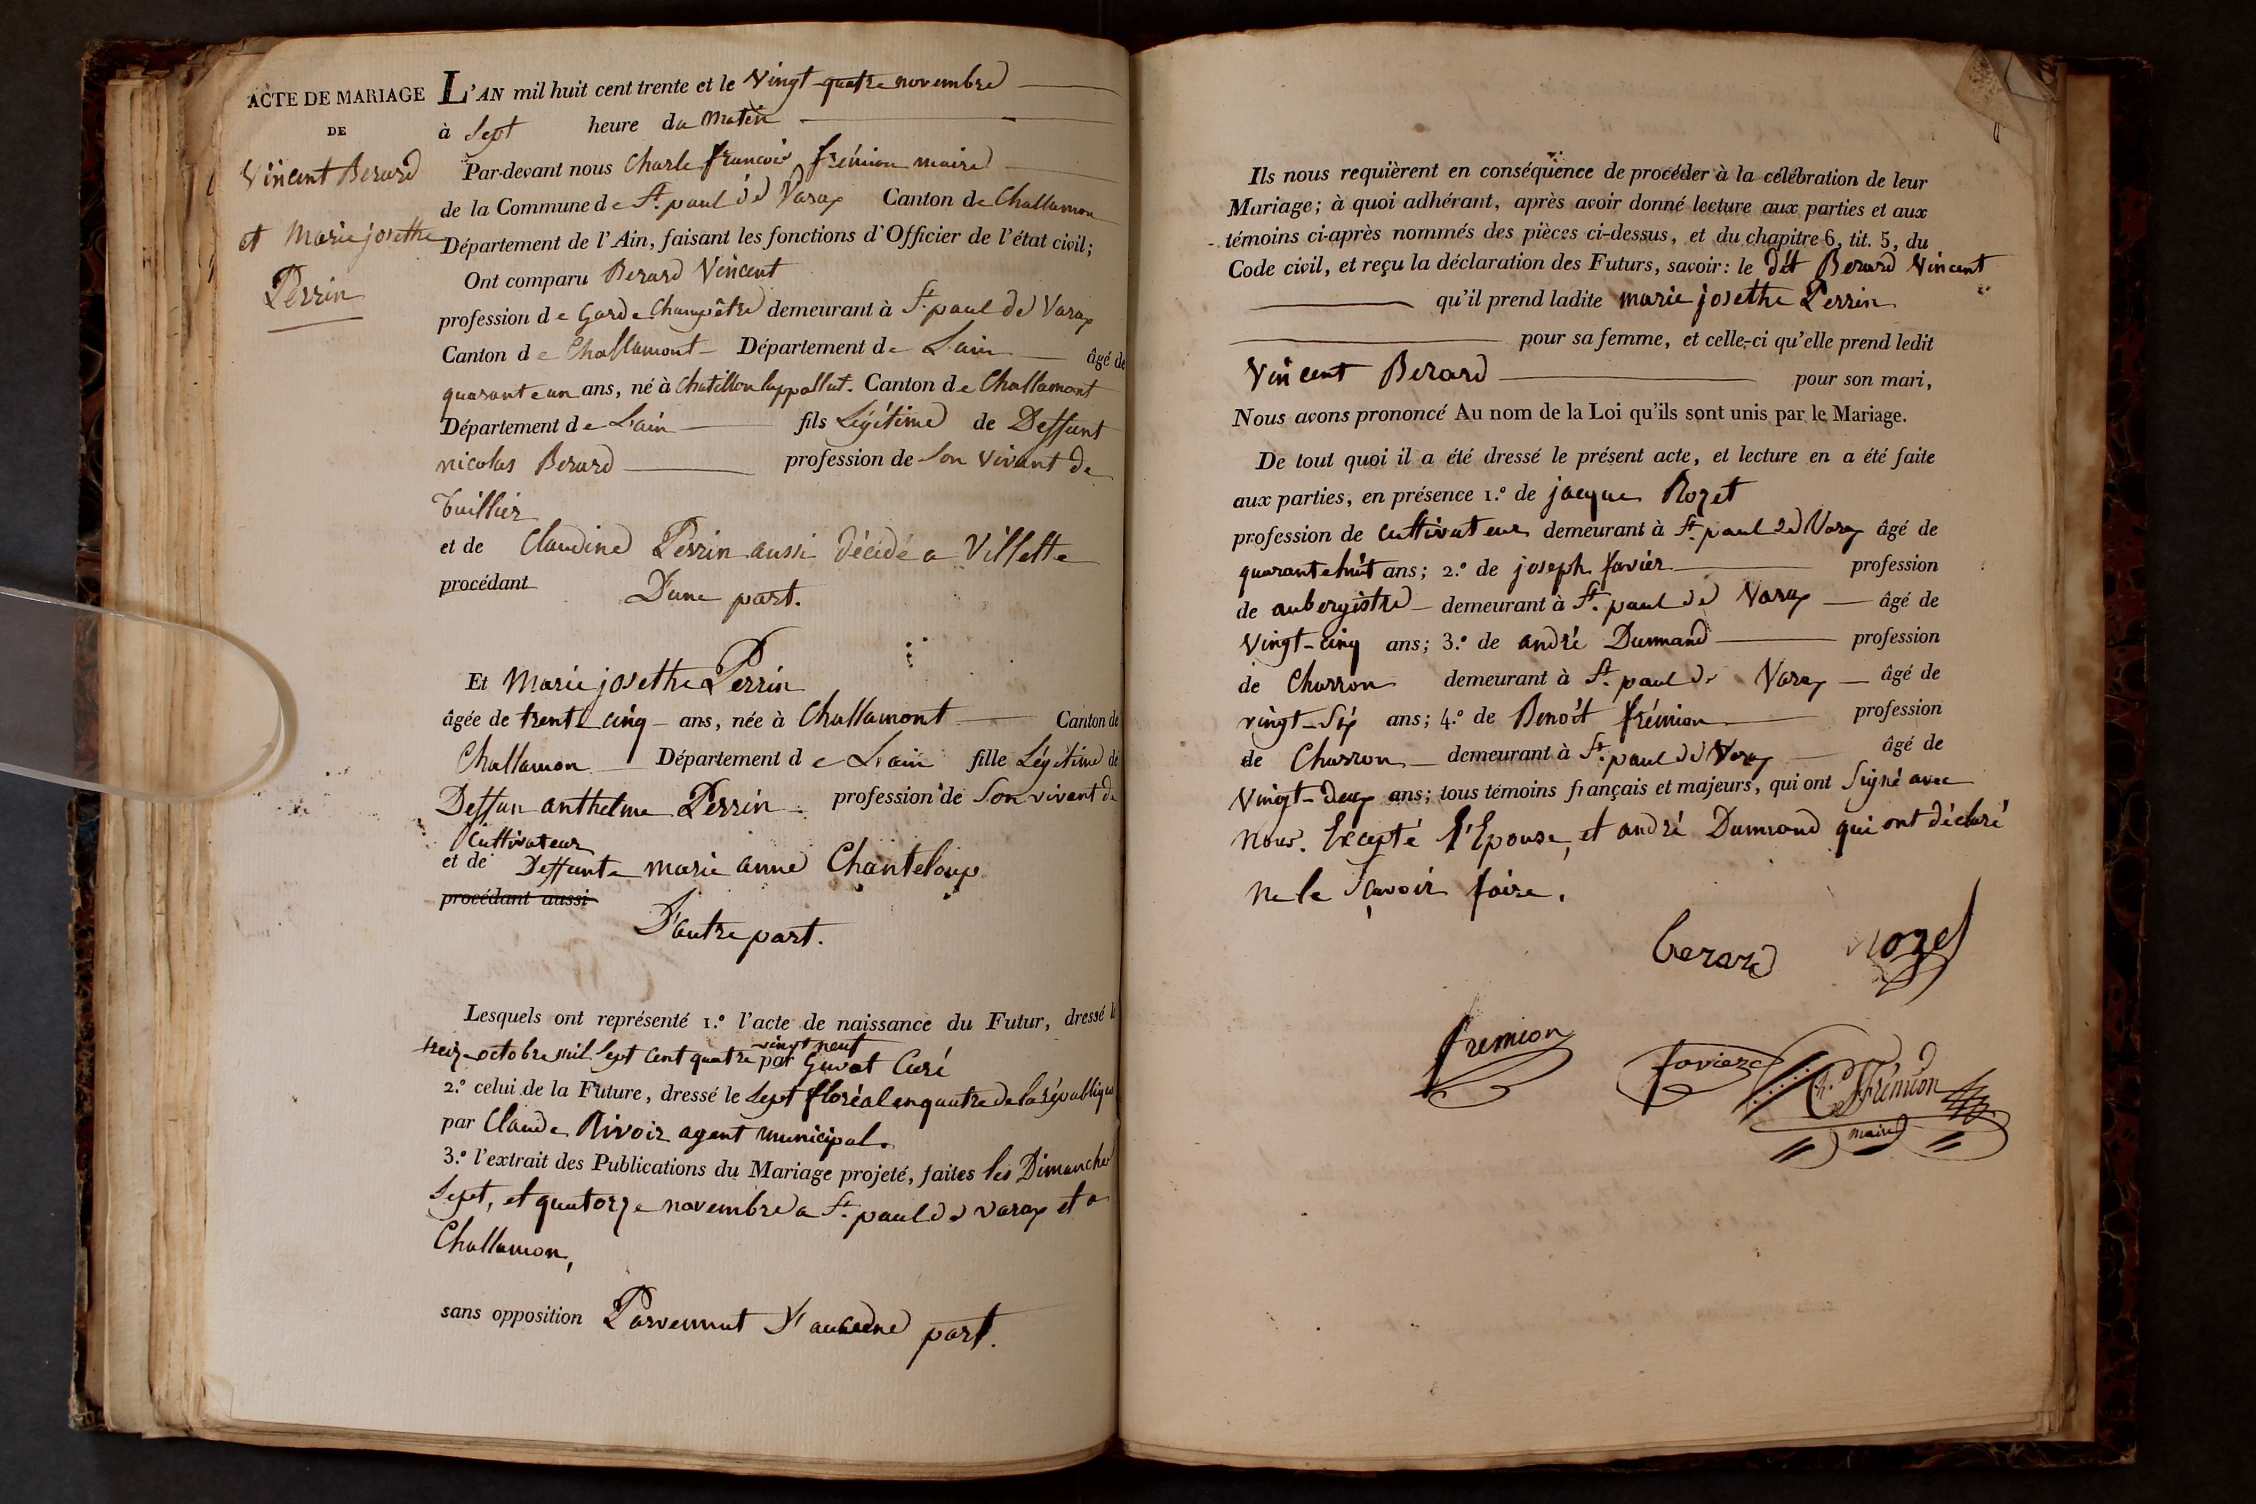 ACTE DE MARIAGE
DE
Vincent Berard
et Marie josethe
Perrin
L'AN mil huit cent trente et le vingt quatre novembre
à Sept heure du matin
Par-devant nous Charle françois frémion maire
de la Commune de St. paul de Varax Canton de Challamon
Département de l'Ain, faisant les fonctions d'Officier de l'état civil;
Ont comparu Berard Vincent
profession de Garde Champêtre demeurant à St. paul de Varax
Canton de Challamont Département de Lain âgé de
quarante un ans, né à Chatillon lappallut. Canton de Challamont
Département de Lain fils Légitime de Deffunt
nicolas Berard profession de Son vivant de
tuillier
et de Claudine Perrin aussi décédé a Villette
procédant D'une part.
Et Marie josethe Perrin
âgée de trente cinq ans, née à Challamont Canton de
Challamon Département de Lain fille Légitime de
Deffun anthelme Perrin profession de Son vivent de
Cultivateur
et de Deffunte marie anne Chanteloup
procédant aussi
D'autre part.
Lesquels ont représenté 1.° l'acte de naissance du Futur, dressé le
vingt neuf
treize octobre mil Sept Cent quatre par Guvat Curé
2.° celui de la Future, dressé le Sept floréal an quatre de la république
par Claude Rivoir agent municipal.
3.° l'extrait des Publications du Mariage projeté, faites les Dimanche
Sept, et quatorze novembre a St. paul de varax et a
Challamon,
sans opposition Parvennut d'aucune part.
Ils nous requièrent en conséquence de procéder à la célébration de leur
Mariage; à quoi adhérant, après avoir donné lecture aux parties et aux
témoins ci-après nommés des pièces ci-dessus, et du chapitre 6, tit. 5, du
Code civil, et reçu la déclaration des Futurs, savoir: le dit Berard Vincent
qu'il prend ladite marie josethe Perrin
pour sa femme, et celle-ci qu'elle prend ledit
Vincent Berard pour son mari,
Nous avons prononcé Au nom de la Loi qu'ils sont unis par le Mariage.
De tout quoi il a été dressé le présent acte, et lecture en a été faite
aux parties, en présence 1.° de jacque Rozet
profession de cultivateur demeurant à St. paul de Varax âgé de
quarante huit ans; 2.° de joseph favier profession
de aubergistre demeurant à St. paul de Varax âgé de
vingt-cinq ans; 3.° de andré Dumand profession
de Charron demeurant à St. paul de Varax âgé de
vingt-Six ans; 4.° de Benoît frémion profession
de Charron demeurant à St. paul de Varax âgé de
Vingt-deux ans; tous témoins français et majeurs, qui ont Signé avec
nous. Excepté l'Epouse, et andré Dumand qui ont déclaré
ne le Savoir faire.
berard Rozet
fremion favier Ch. Frémion
maire